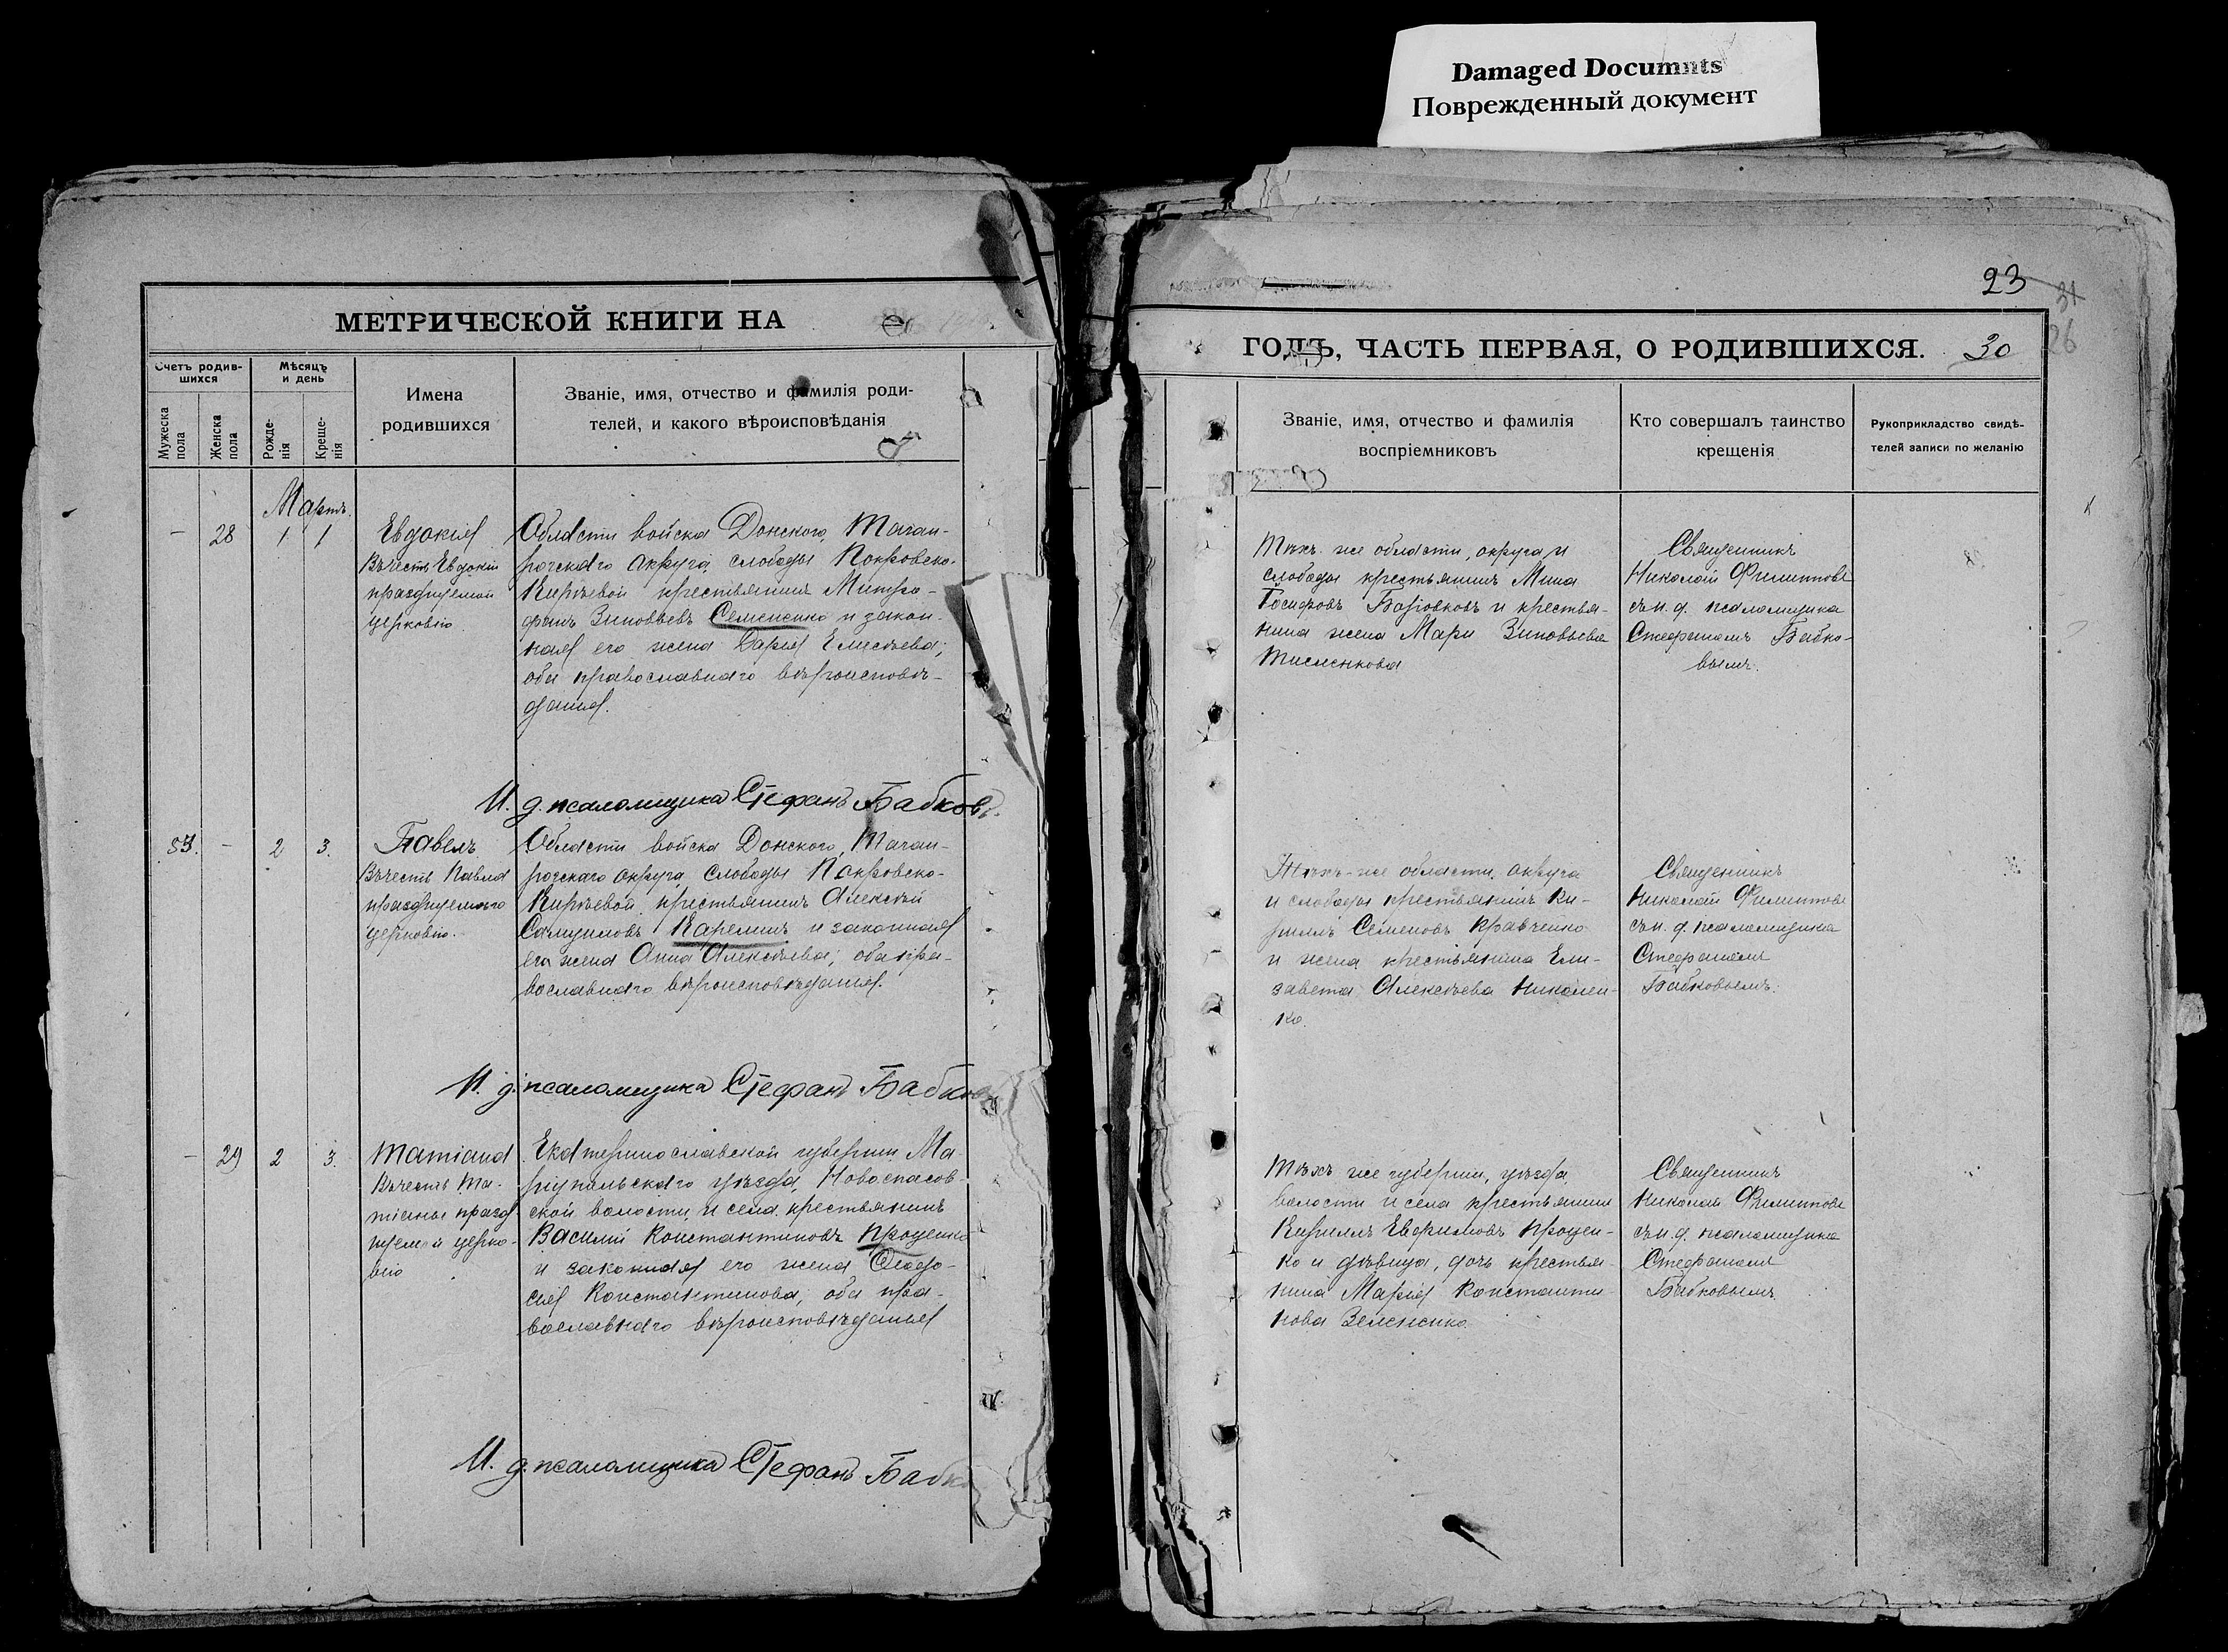 Damaged Documnts
Поврежденный документ
23
31
26
МЕТРИЧЕСКОЙ КНИГИ НА
Счетъ родив-
шихся
Мѣсяцъ
и день
Мужеска
пола
Женска
пола
Рожде-
нія
Креще-
нія
Имена
родившихся
Званіе, имя, отчество и фамилія роди-
телей, и какого вѣроисповѣданія
Мартъ.
— 28 1 1
Евдокія
Въ честь Евдокіи
празднуемой
церковію.
Области войска Донского, Таган-
рогскаго округа, слободы Покровско-
Кирѣевой крестьянинъ Митро-
фанъ Зиновьевъ Семененко и закон-
ная его жена Дарія Елисѣева;
оба православнаго вѣроисповѣ-
данія.
И. д. псаломщика Стефанъ Бабковъ.
- 2 3.
Павелъ
Въ честь Павла
празднуемаго
церковію.
Области войска Донского, Таган-
рогскаго округа, слободы Покровско-
Кирѣевой, крестьянинъ Алексѣй
Самуиловъ Карелинъ и законная
его жена Анна Алексѣева; оба пра-
вославнаго вѣроисповѣданія.
И. д. псаломщика Стефанъ
— 29 2 3.
Татіана
Въ честь Та-
тіаны празд
церко-
вію
Екатеринославской губерніи Ма-
ріупольскаго уѣзда, Новоспасов-
ской волости и села крестьянинъ
Василій Константиновъ Проценко
и законная его жена Ѳеодо-
сія Константинова; оба пра-
вославнаго вѣроисповѣданія
И. д. псаломщика Стефанъ
ГОДЪ, ЧАСТЬ ПЕРВАЯ, О РОДИВШИХСЯ. 30
Званіе, имя, отчество и фамилія
воспріемниковъ
Кто совершалъ таинство
крещенія
Рукоприкладство свидѣ-
телей записи по желанію
Тѣхъ же области, округа и
слободы крестьянинъ Мина
и крестья-
нина жена Зиновьева
Священникъ
Николай Филипповъ
съ и. д. псаломщика
Стефаномъ Бабко-
вымъ.
Тѣхъ-же области, округа
и слободы крестьянинъ Ки-
риллъ Семеновъ Кравченко
и жена крестьянина Ели-
завета Алексѣева Николен-
ко.
Священникъ
Николай Филипповъ
съ и. д. псаломщика
Стефаномъ
Бабковымъ.
Тѣхъ же губерніи, уѣзда,
волости и села крестьянинъ
Кириллъ Евфимовъ Процен-
ко и дѣвица, дочь крестья-
нина Марія Константи-
нова Зелененко.
Священникъ
Николай Филипповъ
съ и. д. псаломщика
Стефаномъ
Бабковымъ.